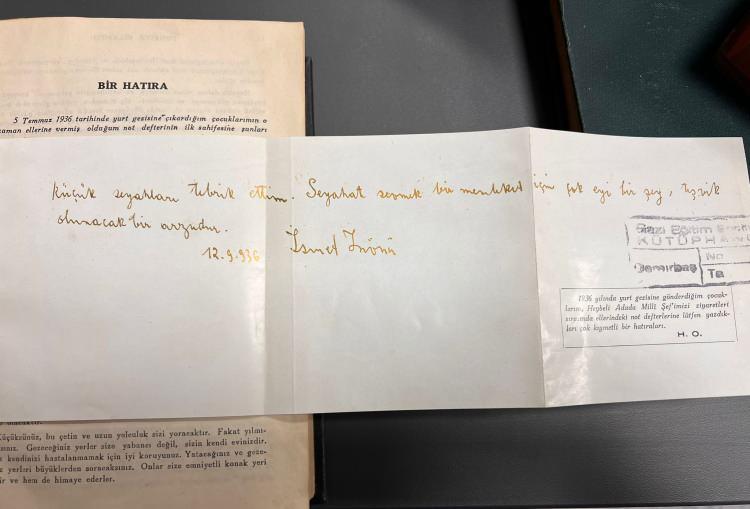 BİR HATIRA
5 Temmuz 1936 tarihinde yurt gezisine çıkardığım çocuklarımın o
zaman ellerine vermiş olduğum not defterinin ilk sahifesine şunları
Küçük seyyahları tebrik ettim. Seyahat sevmek bir memleket için çok eyi bir şey, teşvik
olunacak bir arzudur.
12.9.936 İsmet İnönü
Gazi Eğitim
KÜTÜPHANE
Demirbaş
No
Ta
1936 yılında yurt gezisine gönderdiğim çocuk-
larım, Heybeli Adada Millî Şef'imizi ziyaretleri
sırasında ellerindeki not defterlerine lûtfen yazdık-
ları çok kıymetli bir hatıraları.
H. O.
Küçükzünüz, bu çetin ve uzun yolculuk sizi yoracaktır. Fakat yılmı-
sınız. Gezeceğiniz yerler size yabancı değil, sizin kendi evinizdir.
kendinizi hastalanmamak için iyi koruyunuz. Yatacağınız ve geze-
z yerleri büyüklerden soracaksınız. Onlar size emniyetli konak yeri
ir ve hem de himaye ederler.